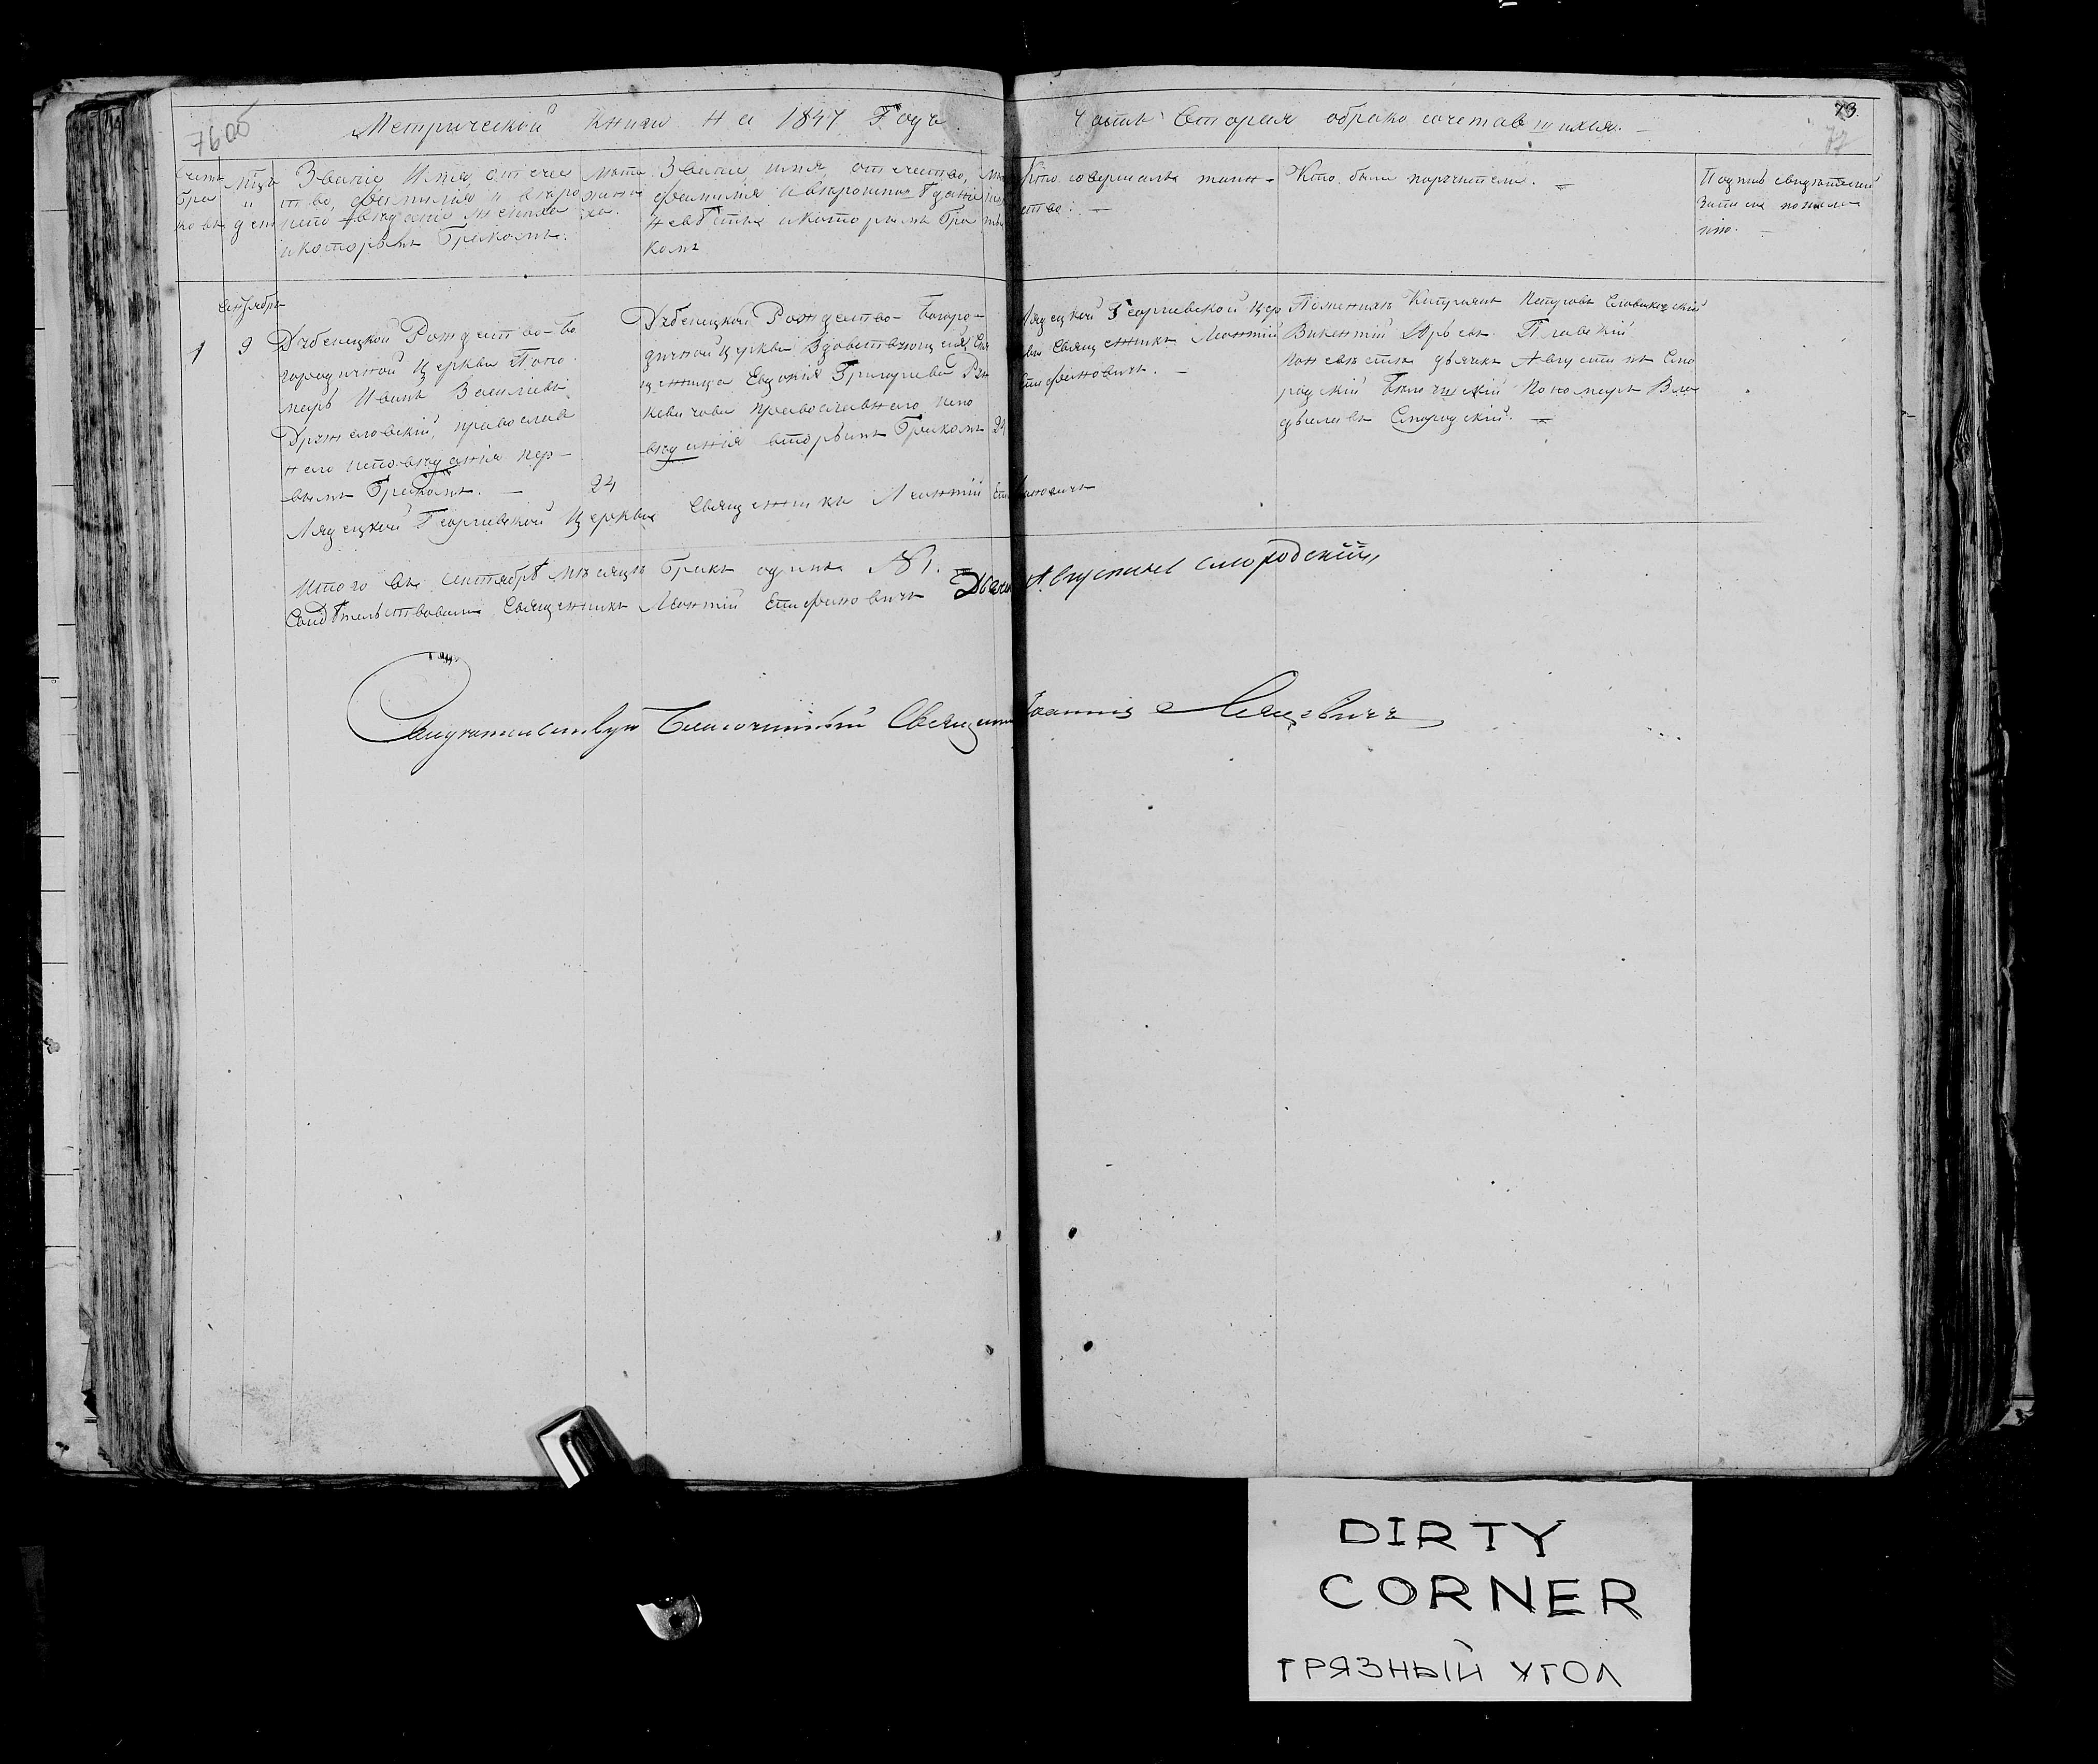 76об
Метрической Книги на 1847 Годъ
Часть Вторая о бракосочетавшихся.
73.
77
Счетъ бра ковъ
Мѣсцъ и дени
Званіе Имя, отече
ство, фамилія и вѣро
исповѣданіе жениха
и которымъ бракомъ.
Лѣта жени ха.
Званіе, имя, отечество,
фамилія и вѣроисповѣданіе
невѣсты и которымъ бра
комъ
Кто совершалъ таин-
ство.
Кто были поручители.
Подпись свидѣтелей
записи по жела
нію.
Сентябрь
1
9
Дубенецкой Рождество-Бо
городичной Церкви Поно
марь Иванъ Васильевъ
православ
наго исповѣданія пер-
вымъ бракомъ. —
24
Дубенецкой Рождество-Богоро-
дичной Церкви Вдовствующая
Евдокія Григорьева
православнаго испо
вѣданія вторымъ бракомъ
24
Лядецкой Георгіевской Цер
кви Священникъ Леонтій
Стефановичъ. —
По женихѣ Кипріянъ Петровъ
Викентій Юрьевъ
по невѣстѣ дьячекъ Августинъ Смо
родскій Пономарь Вла
диславъ Смородскій.
Лядецкой Георгіевской Церкви Священникъ Леонтій Стефановичъ
Итого въ Сентябрѣ мѣсяцѣ бракъ одинъ №1.
Свидѣтельствовали Священникъ Леонтій Стефановичъ Дьячекъ Августинъ Смородскій
Свидѣтельствую Благочинный Священникъ Іоаннъ
DIRTY
CORNER
ГРЯЗНЫЙ УГОЛ